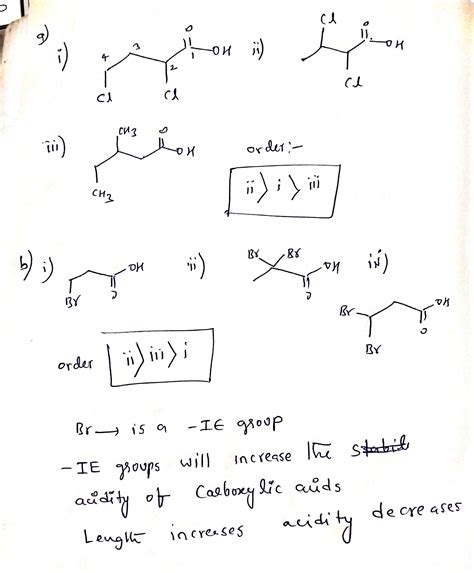 a)
i) 4 3 2 1 O OH Cl Cl
ii) Cl O OH Cl
iii) CH3 O OH CH3
order:-
ii > i > iii
b) i) OH Br O
ii) Br Br OH O
iii) Br Br OH O
order ii > iii > i
Br → is a -IE group
-IE groups will increase the stabil
acidity of Carboxylic acids
Length increases acidity decreases